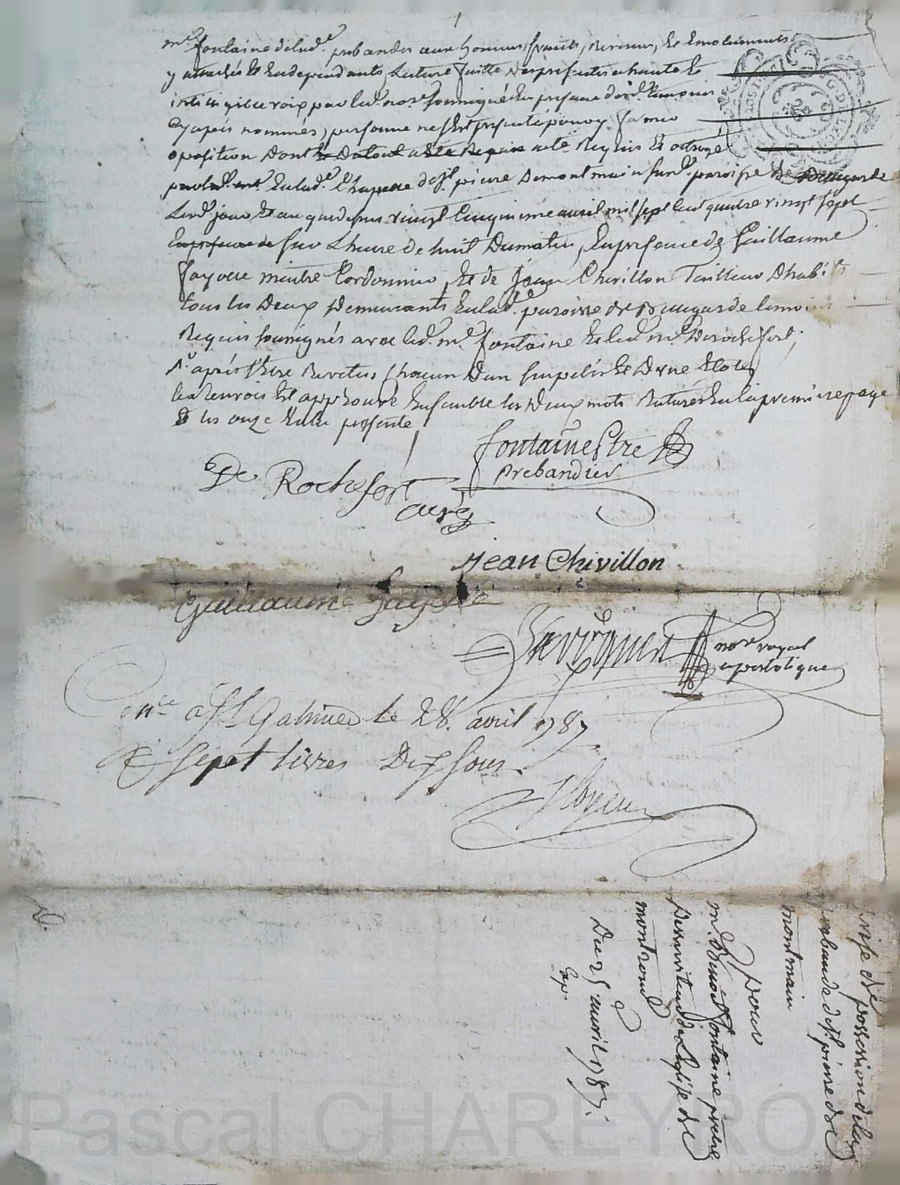 mre fontaine de lad.e prebande aux honneurs, fruits, revenus, et emoluments
y attachés et en dependants, lecture faitte des presentes a haute et
inteligible voix par led. nore soussigné en presence des d. temoins
cy apres nommés, personne ne s'est presenté pour y former
oposition dont et du tout acte requis et octroyé
en lad.e Chapelle de St pierre de montmain susd. paroisse de Bellegarde
Led. jour et an que dessus vingt cinquieme avril mil sept cent quatre vingt sept
sur L'heure de huit du matin, en presence de Guillaume
fayolle maitre Cordonnier, et de Jean Chivillon Tailleur D'habits
tous les deux demeurants en lad. paroisse de Bellegarde temoins
Requis soussignés avec led. mre fontaine et led. mre Derochefort,
apres s'être revetus chacun d'un surpelis et d'une Etole,
les renvois et approuvé Ensemble les deux mots raturés en la premiere page
& les onze en la presente
fontaine Ptre
Prebandier
De Rochefort
curé
Jean Chivillon
Guillaume fayolle
nore royal
apostolique
Con.le a St Galmier le 28. avril 1787
sept livres Dix sous.
prise de possession de la
prebande de St pierre de
montmain
Pour
mre Benoit fontaine pretre
Desserviteur de L'Eglise de
montrond
Du 25 avril 1787.
Exp.
Pascal CHAREYRO